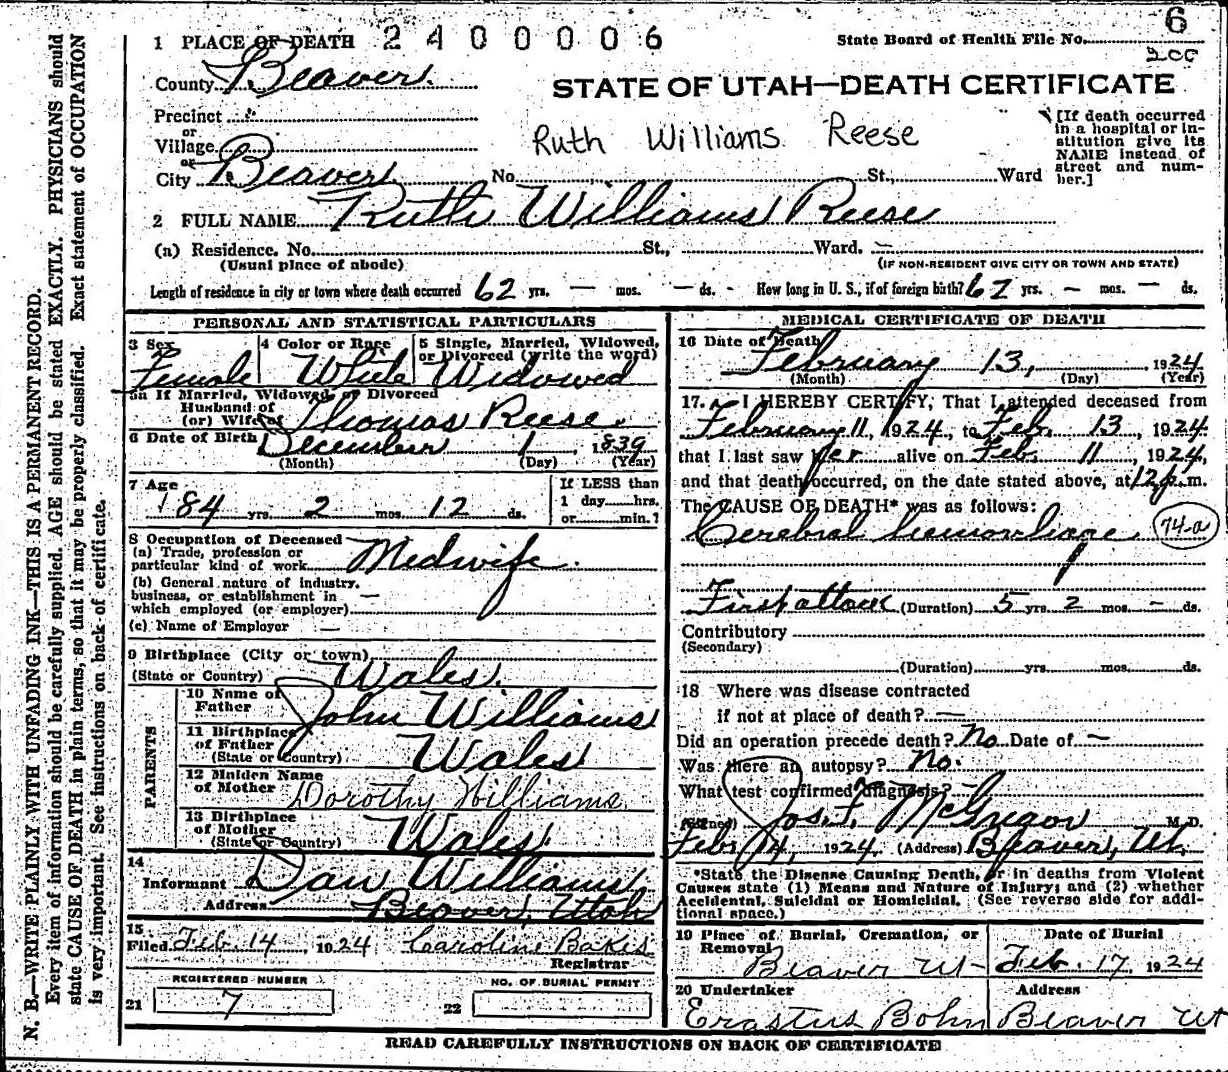 6
200
1 PLACE OF DEATH 2400006 State Board of Health File No.
County Beaver
STATE OF UTAH—DEATH CERTIFICATE
Precinct
or
Village
Ruth Williams Reese
[If death occurred in a hospital or institution give its NAME instead of street and number.]
or
City Beaver No. St., Ward
2 FULL NAME Ruth Williams Reese
(a) Residence. No. St., Ward. —
(Usual place of abode) (IF NON-RESIDENT GIVE CITY OR TOWN AND STATE)
Length of residence in city or town where death occurred 62 yrs. — mos. — ds. How long in U. S., if of foreign birth? 62 yrs. — mos. — ds.
PERSONAL AND STATISTICAL PARTICULARS
3 Sex
Female
4 Color or Race
White
5 Single, Married, Widowed, or Divorced (write the word)
Widowed
5a If Married, Widowed, or Divorced
Husband of
(or) Wife of Thomas Reese.
6 Date of Birth December 1 1839
(Month) (Day) (Year)
7 Age
84 yrs. 2 mos. 12 ds.
If LESS than
1 day......hrs.
or......min.?
8 Occupation of Deceased
(a) Trade, profession or
particular kind of work Medwife.
(b) General nature of industry.
business, or establishment in —
which employed (or employer)
(c) Name of Employer —
9 Birthplace (City or town)
(State or Country) Wales.
PARENTS
10 Name of
Father John Williams
11 Birthplace
of Father
(State or Country) Wales
12 Maiden Name
of Mother
Dorothy Williams
13 Birthplace
of Mother
(State or Country) Wales.
14
Informant Dan Williams
Address Beaver, Utah
15
Filed Feb. 14, 1924 Caroline Bakes
Registrar
REGISTERED NUMBER
21 7
NO. OF BURIAL PERMIT
22
MEDICAL CERTIFICATE OF DEATH
16 Date of Death
February 13, 1924
(Month) (Day) (Year)
17. I HEREBY CERTIFY, That I attended deceased from
February 11, 1924, to Feb. 13, 1924
that I last saw her alive on Feb. 11, 1924,
and that death occurred, on the date stated above, at 12 p.m.
The CAUSE OF DEATH* was as follows:
Cerebral hemorrhage. 74-a
First attack (Duration) 5 yrs. 2 mos. - ds.
Contributory
(Secondary)
(Duration) yrs. mos. ds.
18 Where was disease contracted
if not at place of death? —
Did an operation precede death? No Date of —
Was there an autopsy? No.
What test confirmed diagnosis?
(Signed) Jos. F. McGregor M.D.
Feb 14, 1924. (Address) Beaver, Ut.
*State the Disease Causing Death, or in deaths from Violent
Causes state (1) Means and Nature of Injury; and (2) whether
Accidental, Suicidal or Homicidal. (See reverse side for addi-
tional space.)
19 Place of Burial, Cremation, or
Removal
Beaver Ut-
Date of Burial
Feb. 17, 1924
20 Undertaker
Erastus Bohn
Address
Beaver Ut
READ CAREFULLY INSTRUCTIONS ON BACK OF CERTIFICATE
N. B.—WRITE PLAINLY WITH UNFADING INK—THIS IS A PERMANENT RECORD.
Every item of information should be carefully supplied. AGE should be stated EXACTLY. PHYSICIANS should
state CAUSE OF DEATH in plain terms, so that it may be properly classified. Exact statement of OCCUPATION
is very important. See instructions on back of certificate.